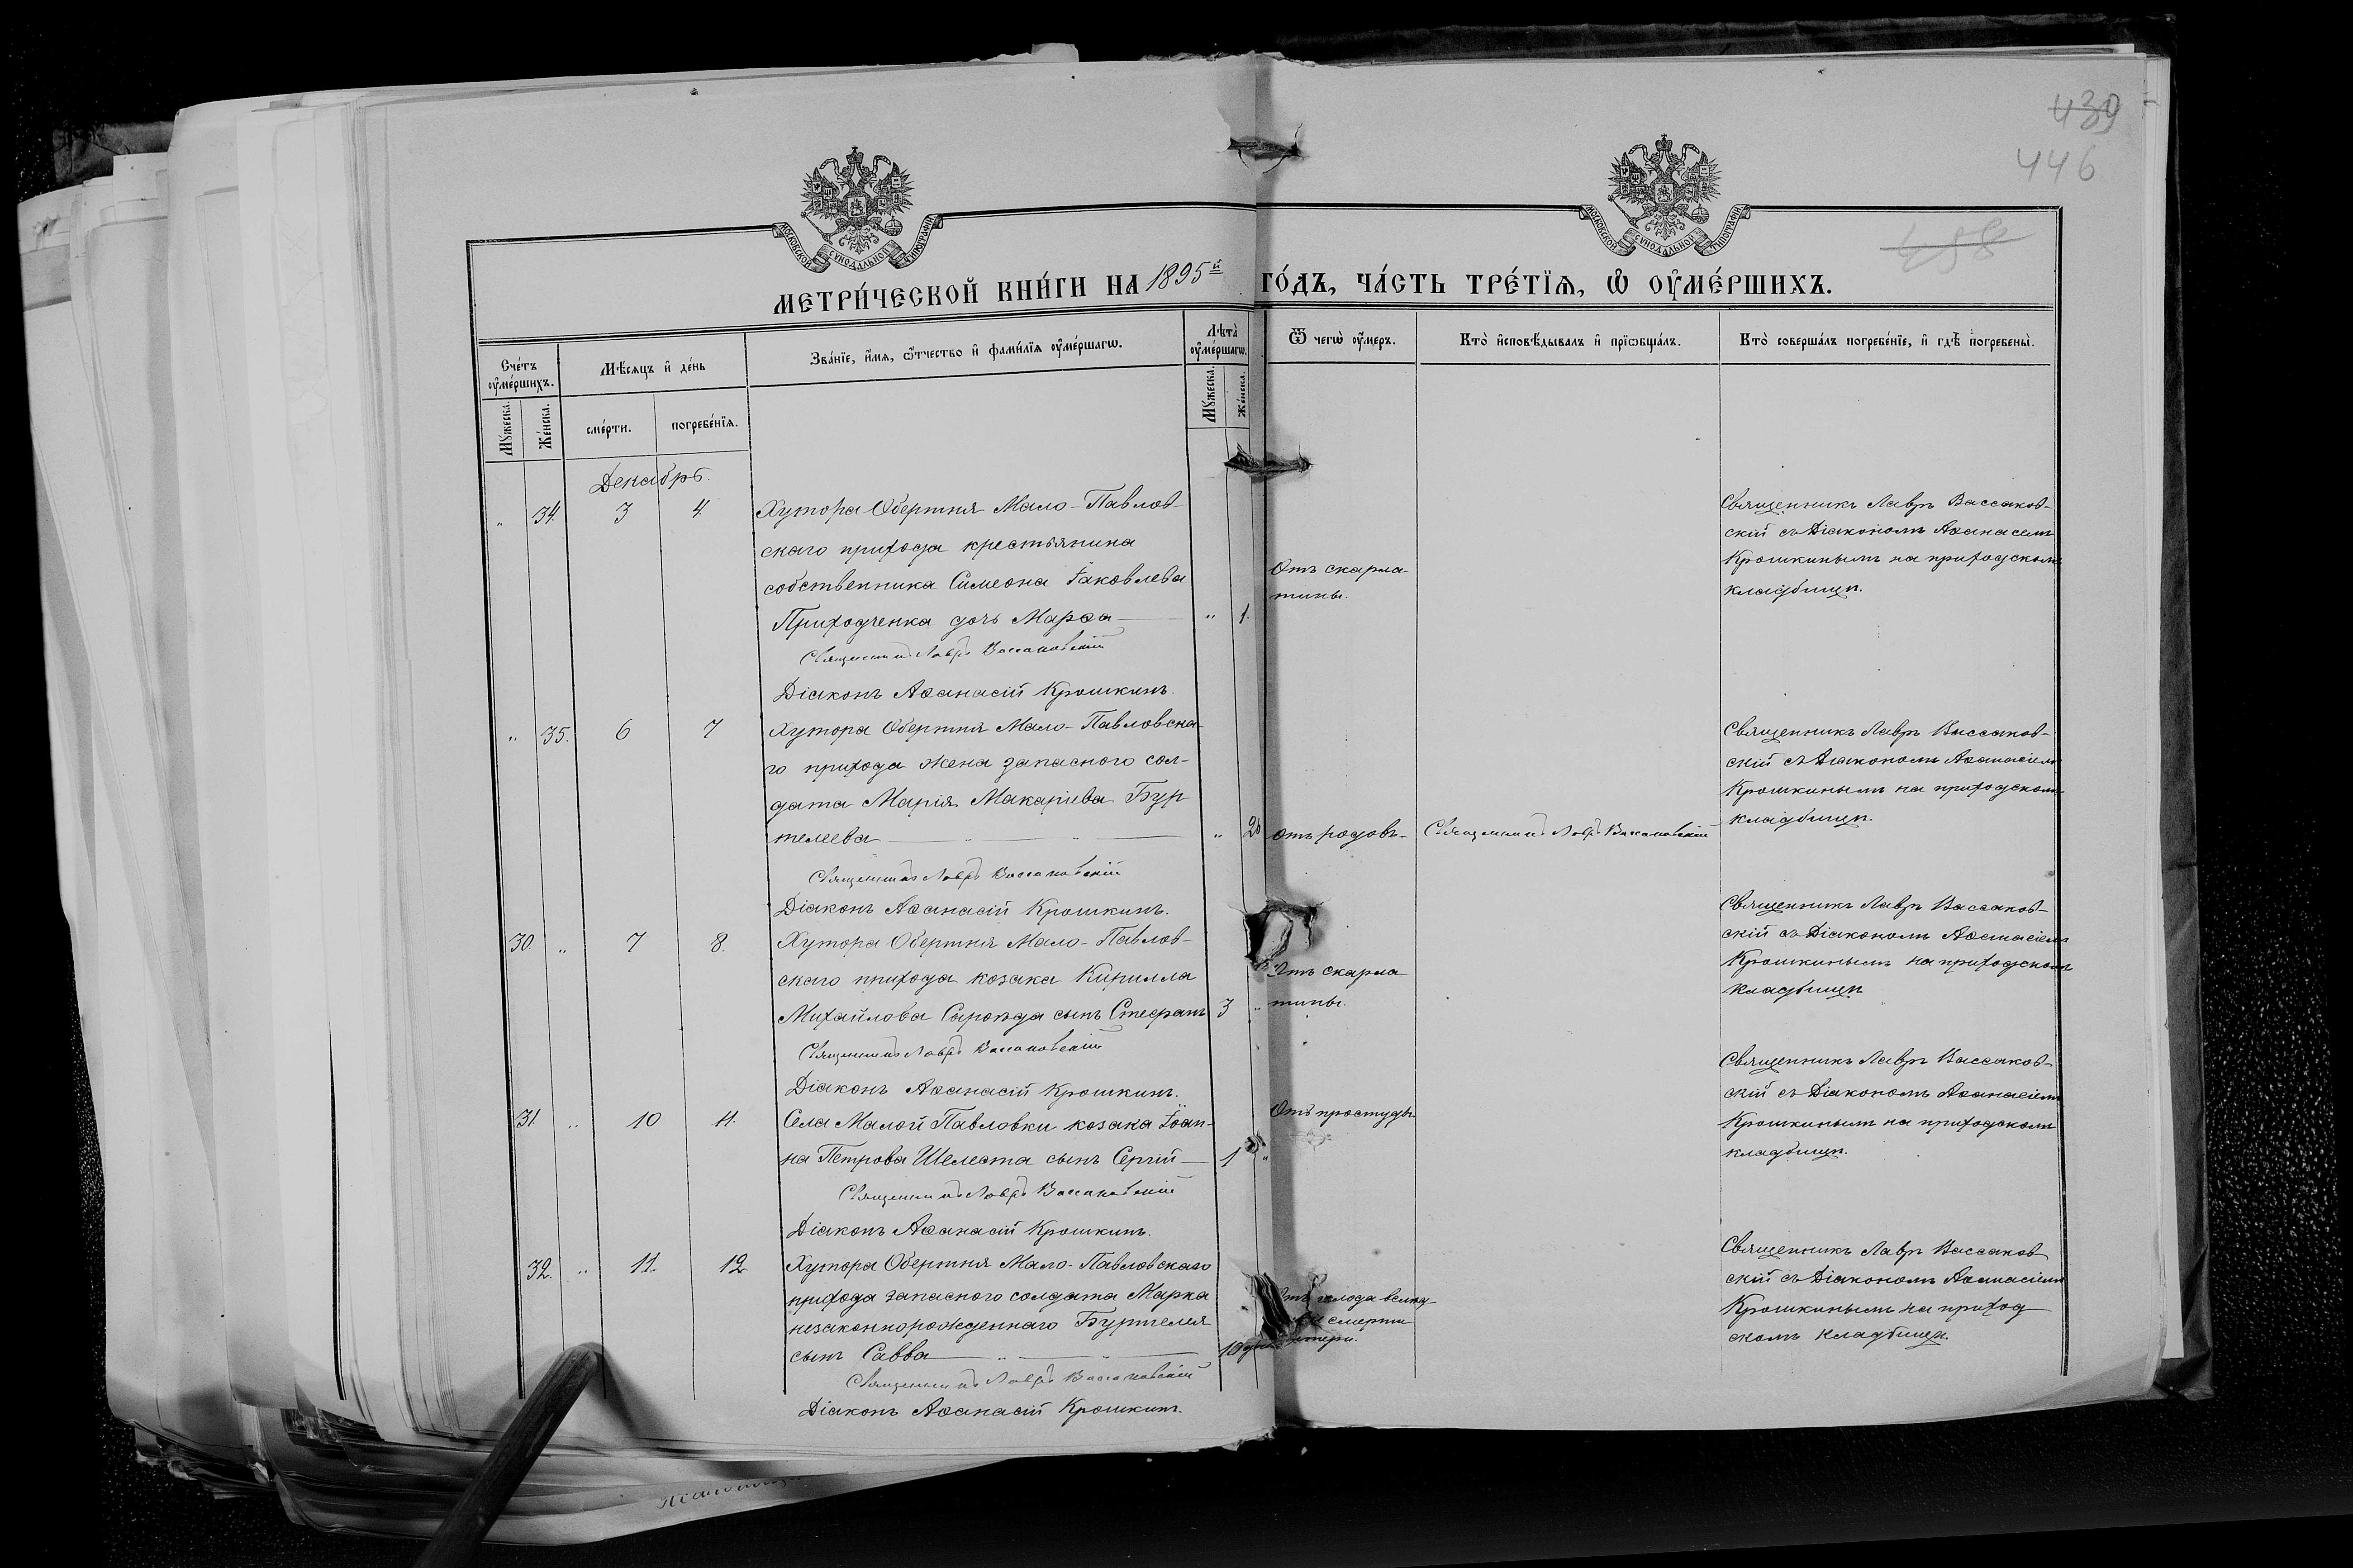 439
446
458
МОСКОВСКОЙ СѴНОДАЛЬНОЙ ТИПОГРАФІИ
МОСКОВСКОЙ СѴНОДАЛЬНОЙ ТИПОГРАФІИ
МЕТРИ́ЧЕСКОЙ КНИ́ГИ НА 1895й ГО́ДЪ, ЧА́СТЬ ТРЕ́ТЇѦ, Ѽ ОУ҆МЕ́РШИХЪ.
Сче́тъ оу҆ме́ршихъ.
Мѣ́сяцъ и҆ де́нь
Зва́нїе, и҆́мѧ, ѻ҆́тчество и҆ фами́лїѧ оу҆ме́ршагѡ.
Лѣта̀ оу҆ме́ршагѡ.
Ѿ чегѡ̀ оу҆́меръ.
Кто̀ и҆сповѣ́дывалъ и҆ прїѡбща́лъ.
Кто̀ соверша́лъ погребе́нїе, и҆ гдѣ̀ погребены̀.
Мꙋ́жеска.
Же́нска.
сме́рти.
погребе́нїѧ.
Мꙋ́жеска.
Же́нска.
Декабрь.
„ 34. 3 4. Хутора Обертня Мало-Павлов-
скаго прихода крестьянина
собственника Симеона Іаковлева
Приходченка дочь Марѳа — „ 1.
Священникъ Лавръ Вассаковскій
Діаконъ Аѳанасій Крошкинъ.
Отъ скарла-
тины.
Священникъ Лавръ Вассаков-
скій съ Діакономъ Аѳанасем
Крошкинымъ на приходскомъ
кладбищѣ.
„ 35. 6 7 Хутора Обертня Мало-Павловска-
го прихода жена запасного сол-
дата Марія Макаріева Бур
телеева — „ — „ — „
отъ родовъ-
Священникъ Лавръ Вассаковскій
Священникъ Лавръ Вассаковскій
Діаконъ Аѳанасій Крошкинъ.
Священникъ Лавръ Вассаков-
скій съ Діакономъ Аѳанасіемъ
Крошкинымъ на приходскомъ
кладбищѣ.
30 „ 7 8. Хутора Обертня Мало-Павлов-
скаго прихода козака Кирилла
Михайлова сынъ Стефанъ 3 „
Священникъ Лавръ Вассаковскій
Діаконъ Аѳанасій Крошкинъ.
Отъ скарла
тины.
Священникъ Лавръ Вассаков-
скій съ Діакономъ Аѳанасіемъ
Крошкинымъ на приходскомъ
кладбищѣ
31. „ 10 11. Села Малой Павловки козака Іоан-
на Петрова Шелеста сынъ Сергій — 1 „
Священникъ Лавръ Вассаковскій
Діаконъ Аѳанасій Крошкинъ.
Отъ простуды
Священникъ Лавръ Вассаков-
скій съ Діакономъ Аѳанасіемъ
Крошкинымъ на приходскомъ
кладбищѣ.
32. „ 11. 12 Хутора Обертня Мало-Павловскаго
прихода запасного солдата Марка
незаконнорожденнаго Буртелея
сынъ Савва — „ — „ — 10
Священникъ Лавръ Вассаковскій
Діаконъ Аѳанасій Крошкинъ.
голода вслѣд-
смерти
матери.
Священникъ Лавръ Вассаков
скій съ Діакономъ Аѳанасіемъ
Крошкинымъ на приход
скомъ кладбищѣ.